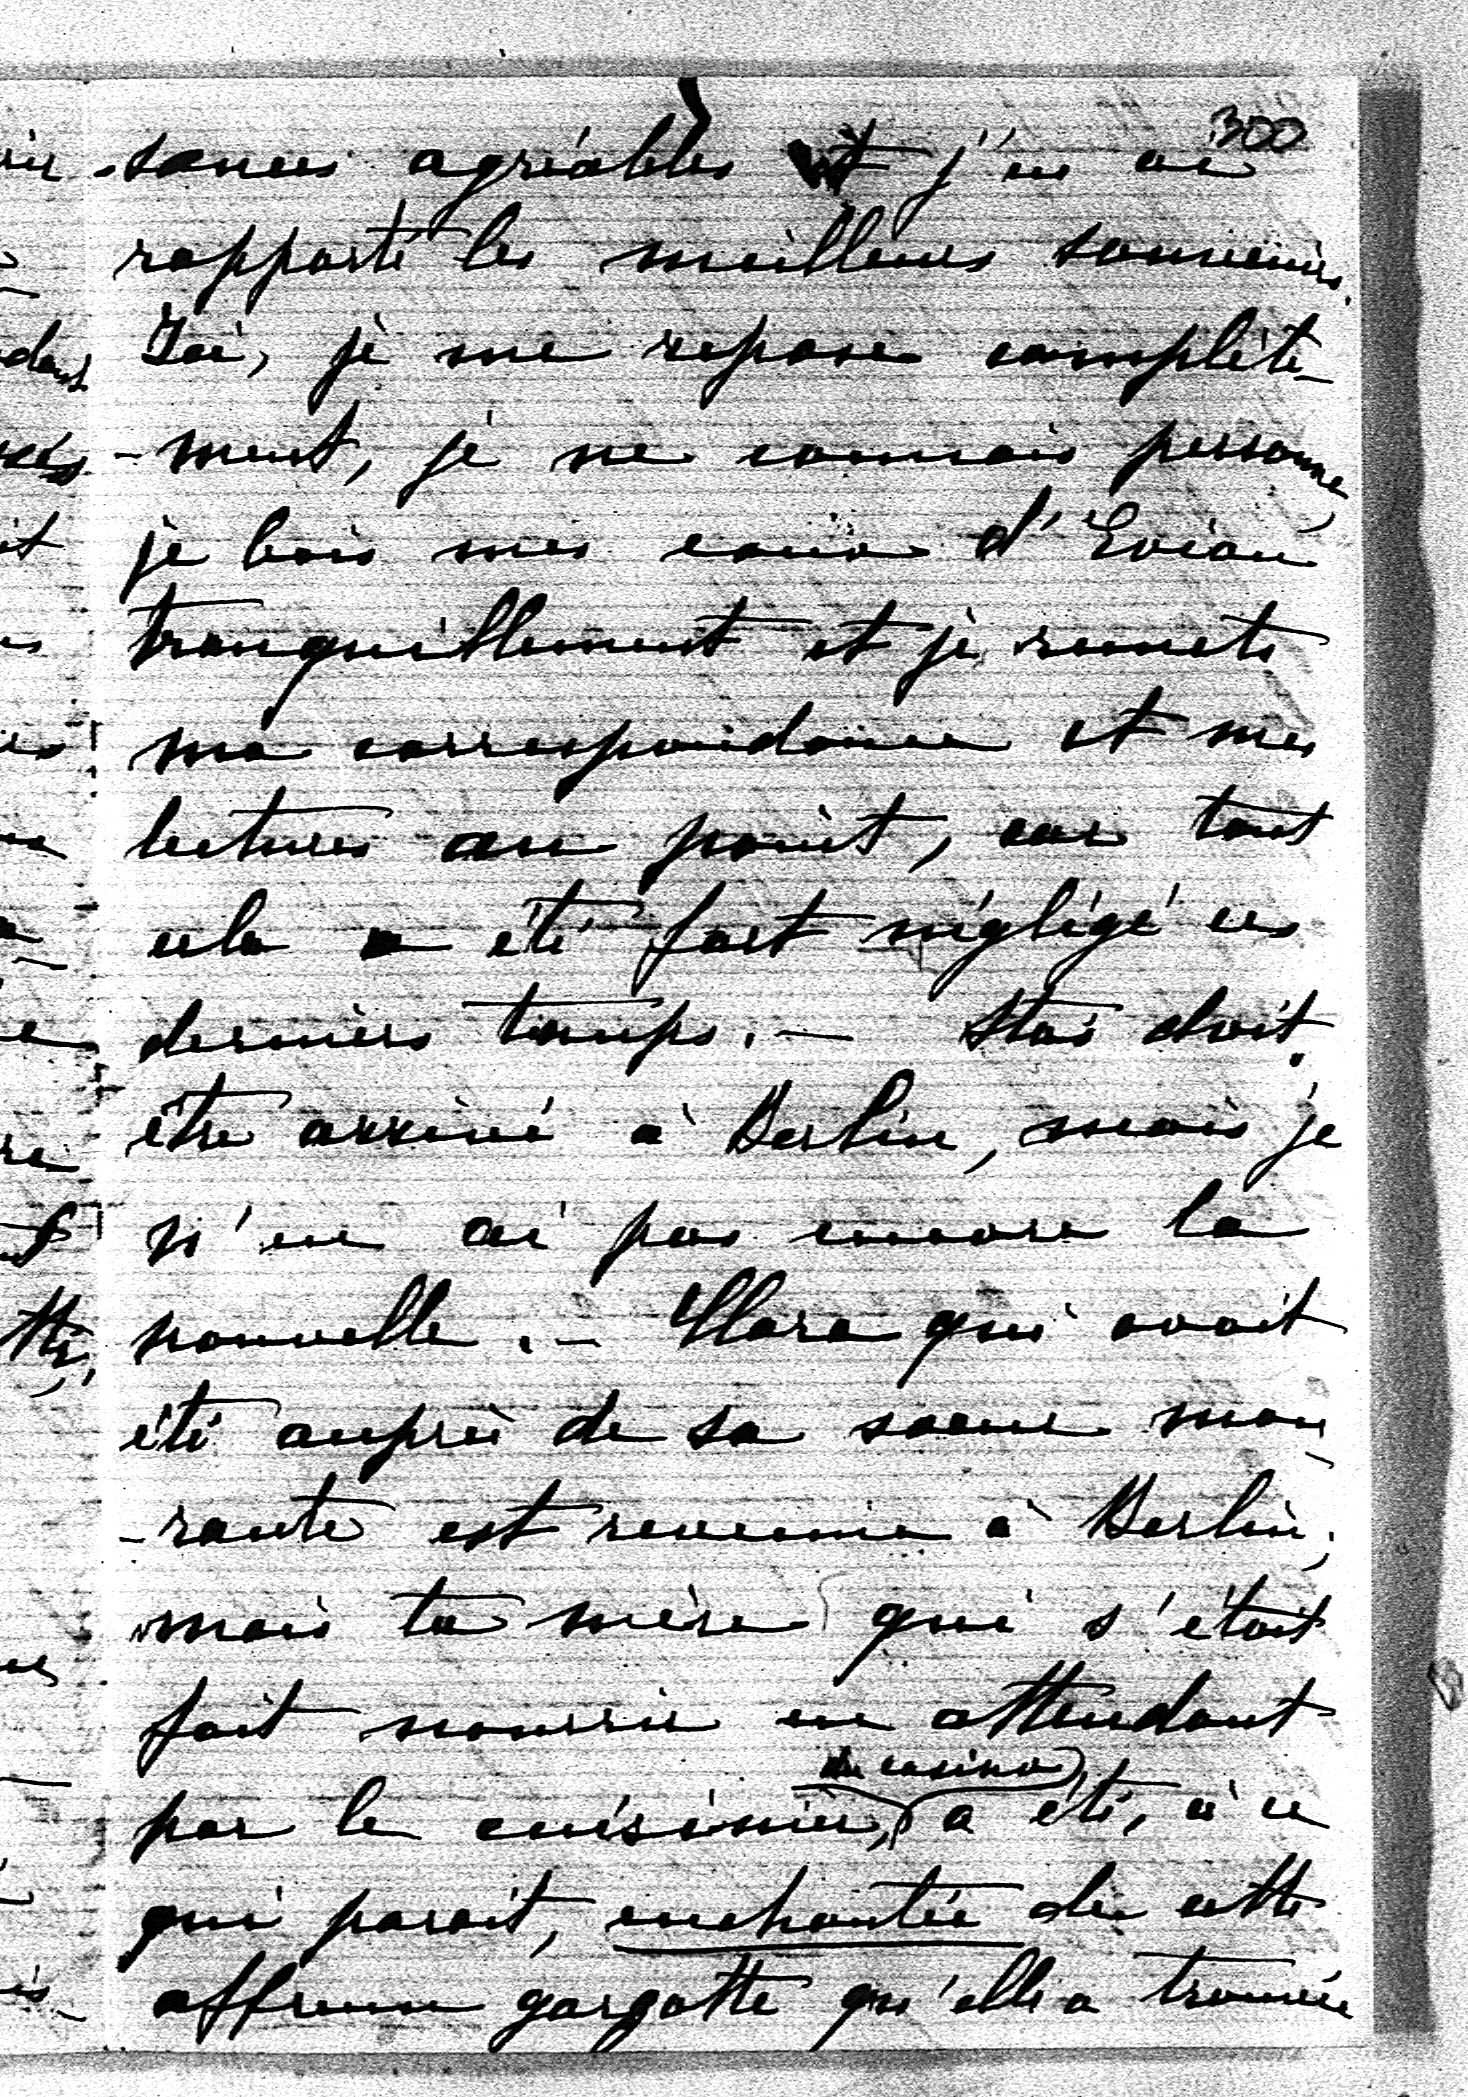 300
-sances agréables et j'en ai
rapporté les meilleurs souvenirs.
Ici, je me repose complète-
-ment, je ne connais personne,
je bois mes eaux d'Evian
tranquillement et je remets
ma correspondance et mes
lectures au point, car tout
cela a été fort négligé ces
derniers temps. — Stas doit
être arrivé à Berlin, mais je
n'en ai pas encore la
nouvelle. — Clara qui avait
été auprès de sa soeur mou-
-rante est revenue à Berlin,
mais ta mère qui s'était
fait nourrir en attendant
du casino
par le cuisinier, a été, à ce
qui parait, enchantée de cette
affreuse gargotte qu'elle a trouvée